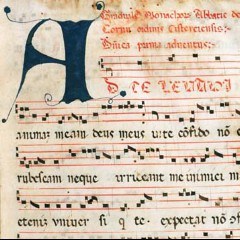 Graduale Monachor Abbatie de
Cornu ordinis Cisterciensis:
Dnica prima adventus:
A
D TE LEVAVI
animaz meam deus meus ī te cōfido nō e
rubescam neque irrideant me inimici mi
etenīz univer si q te expectat nō 9f